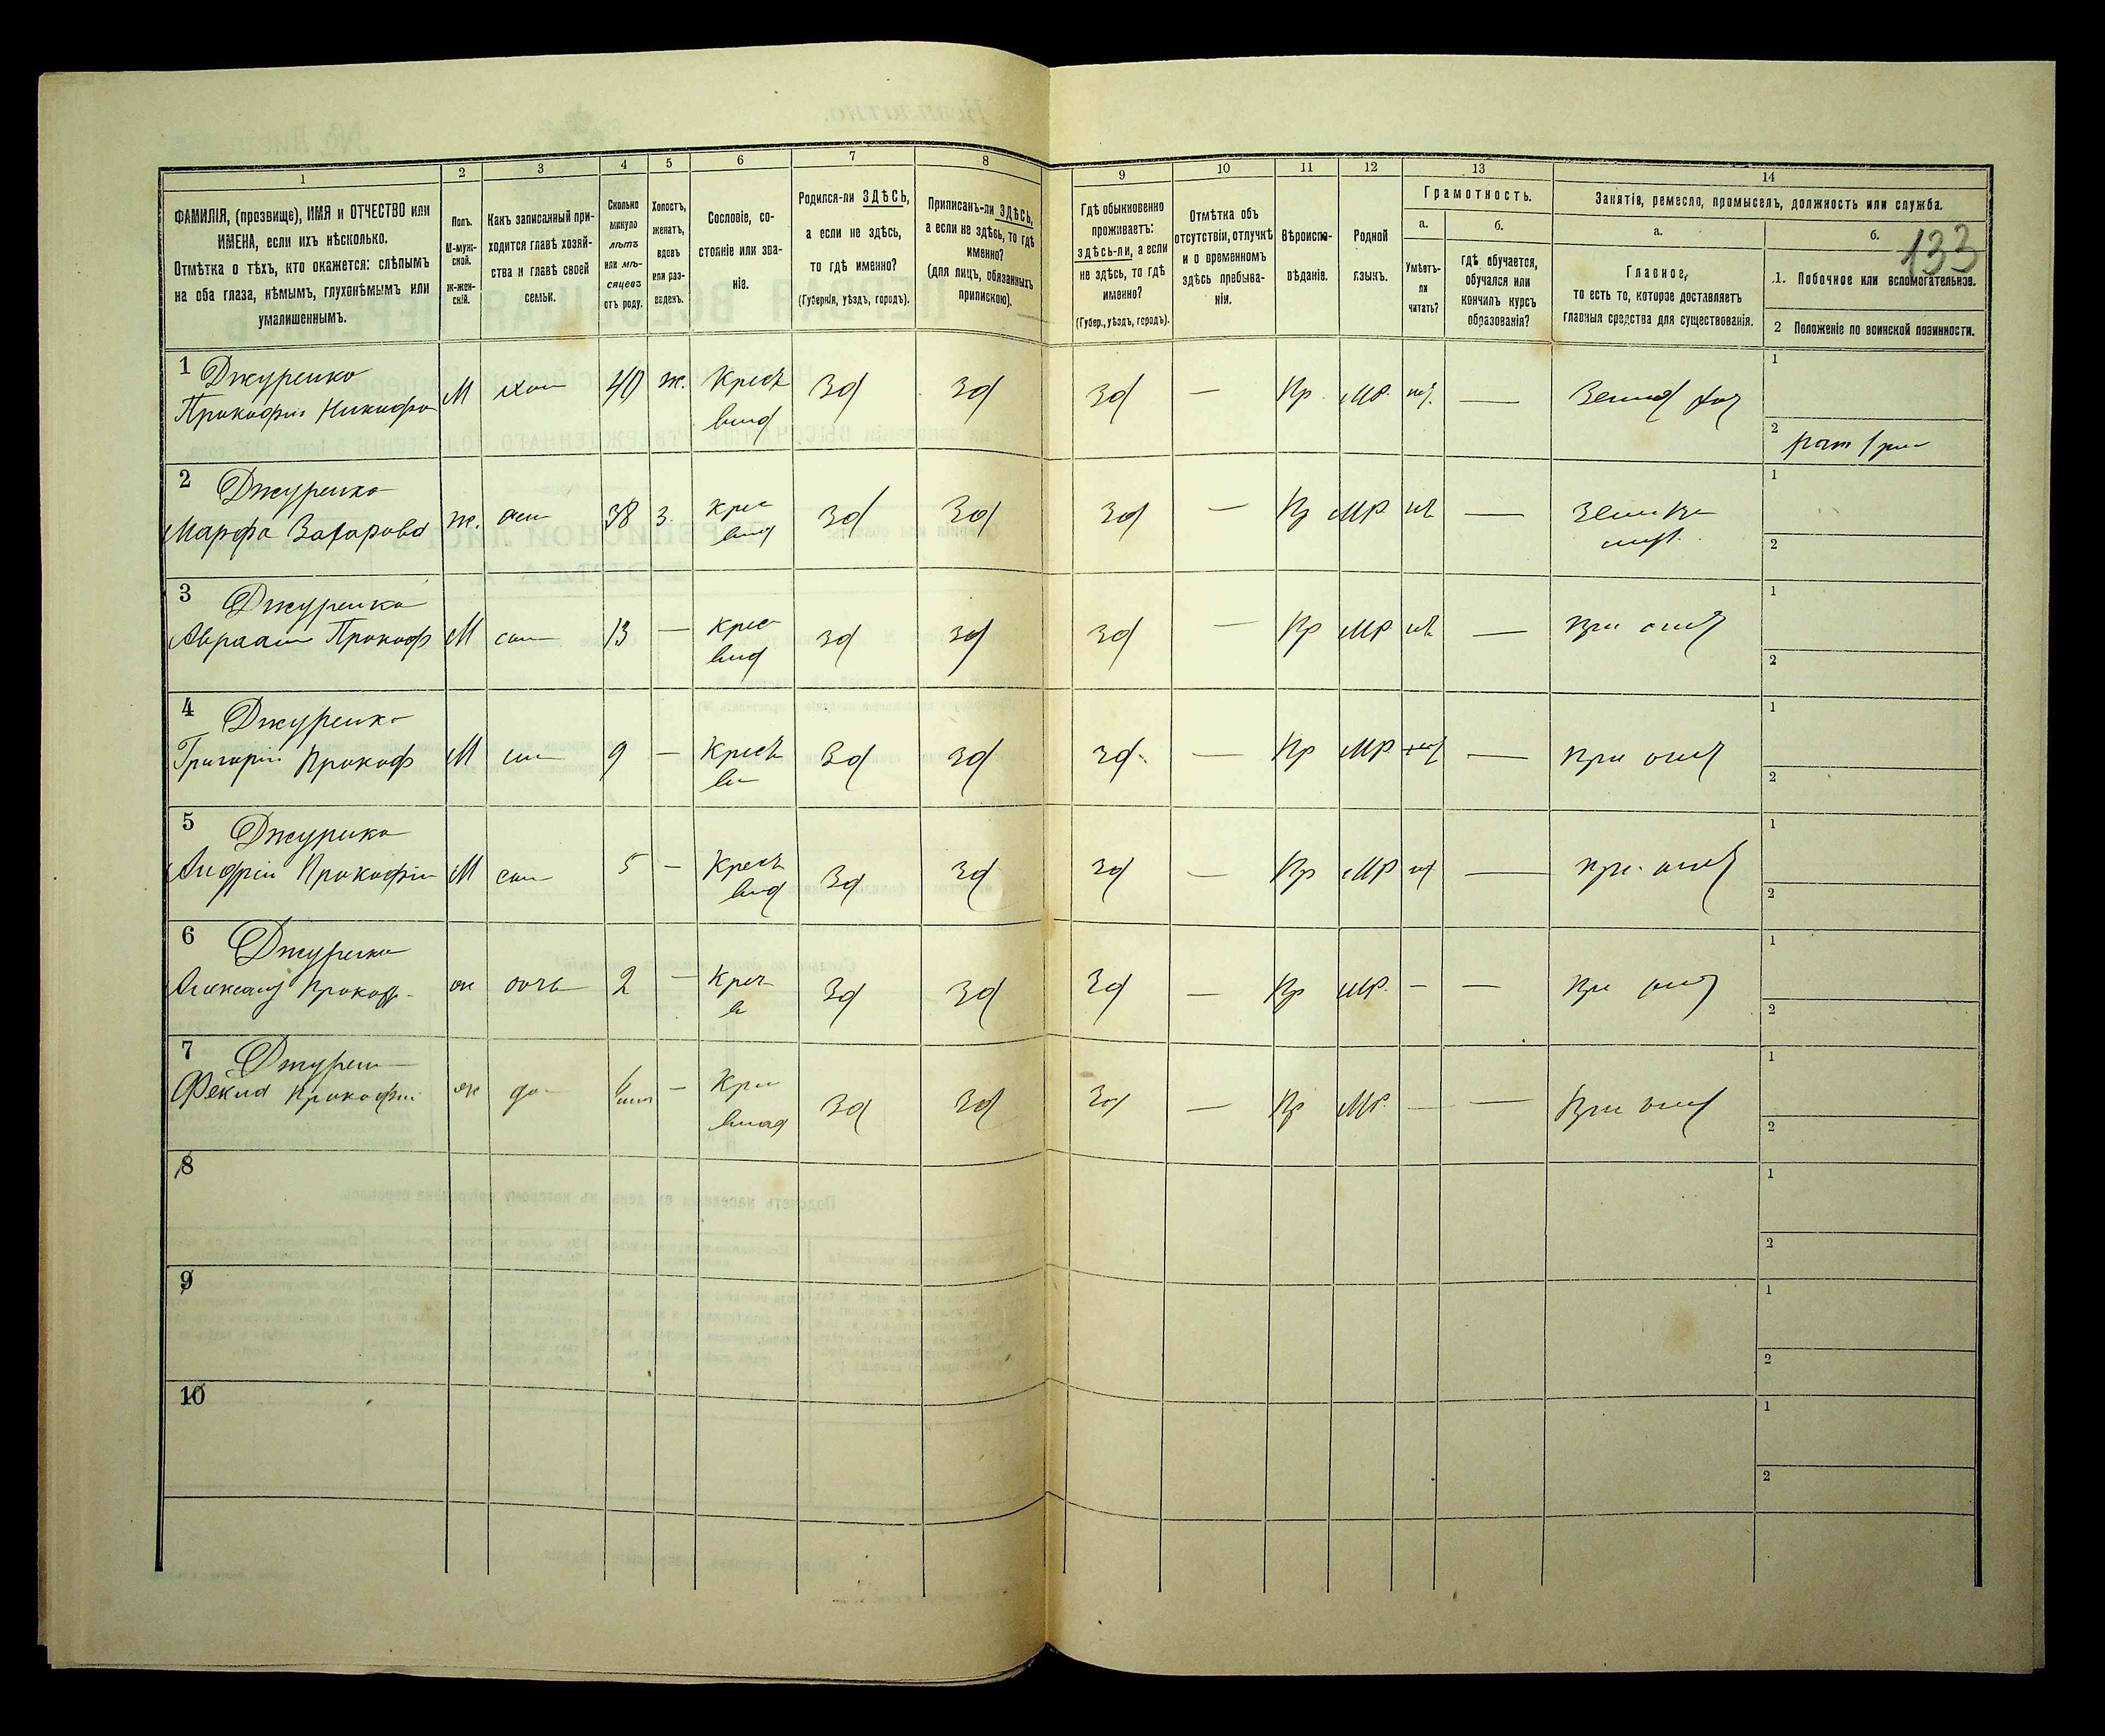 133
1 2 3 4 5 6 7 8 9 10 11 12 13 14
ФАМИЛІЯ, (прозвище), ИМЯ и ОТЧЕСТВО или
ИМЕНА, если ихъ нѣсколько.
Отмѣтка о тѣхъ, кто окажется: слѣпымъ
на оба глаза, нѣмымъ, глухонѣмымъ или
умалишеннымъ.
Полъ.
М-муж-
ской.
Ж-жен-
скій.
Какъ записанный при-
ходится главѣ хозяй-
ства и главѣ своей
семьи.
Сколько
минуло
лѣтъ
или мѣ-
сяцевъ
отъ роду.
Холостъ,
женатъ,
вдовъ
или раз-
веденъ.
Сословіе, со-
стояніе или зва-
ніе.
Родился-ли ЗДѢСЬ,
а если не здѣсь,
то гдѣ именно?
(Губернія, уѣздъ, городъ).
Приписанъ-ли ЗДѢСЬ,
а если не здѣсь, то гдѣ
именно?
(для лицъ, обязанныхъ
припискою).
Гдѣ обыкновенно
проживаетъ:
здѣсь-ли, а если
не здѣсь, то гдѣ
именно?
(Губер., уѣздъ, городъ).
Отмѣтка объ
отсутствіи, отлучкѣ
и о временномъ
здѣсь пребыва-
ніи.
Вѣроиспо-
вѣданіе.
Родной
языкъ.
Грамотность.
а.
Умѣетъ-
ли
читать?
б.
гдѣ обучается,
обучался или
кончилъ курсъ
образованія?
Занятіе, ремесло, промыселъ, должность или служба.
а.
Главное,
то есть то, которое доставляетъ
главныя средства для существованія.
б.
1. Побочное или вспомогательное.
2 Положеніе по воинской повинности.
1 Джуренко
Прокофій Никифо М 40 ж. Крест Зд Зд Зд — Пр. МР. —
влад
1
2
2 Джуренко
Марфа Захарова ж. жен 38 З. Крес Зд Зд Зд — Пр МР. —
влад
1
2
3 Джуренко
Авраам Прокоф М сын 13 — Крес Зд Зд Зд — Пр МР — при отцѣ
влад
1
2
4 Джуренко
Григорій Прокоф М сын 9 — Крест Зд Зд Зд — Пр МР. — при отцѣ
1
2
5 Джуренко
Андрій Прокофій М сын 5 — Крест Зд Зд Зд — Пр МР — при отцѣ
влад
1
2
6 Джуренко
Александ Прокоф. ж дочь 2 — Крес Зд Зд Зд — Пр МР. — — при отцѣ
1
2
7 Джурен
Фекла Прокофій ж до — Кре Зд Зд Зд — Пр МР. — — При отцѣ
влад
1
2
8
1
2
9
1
2
10
1
2